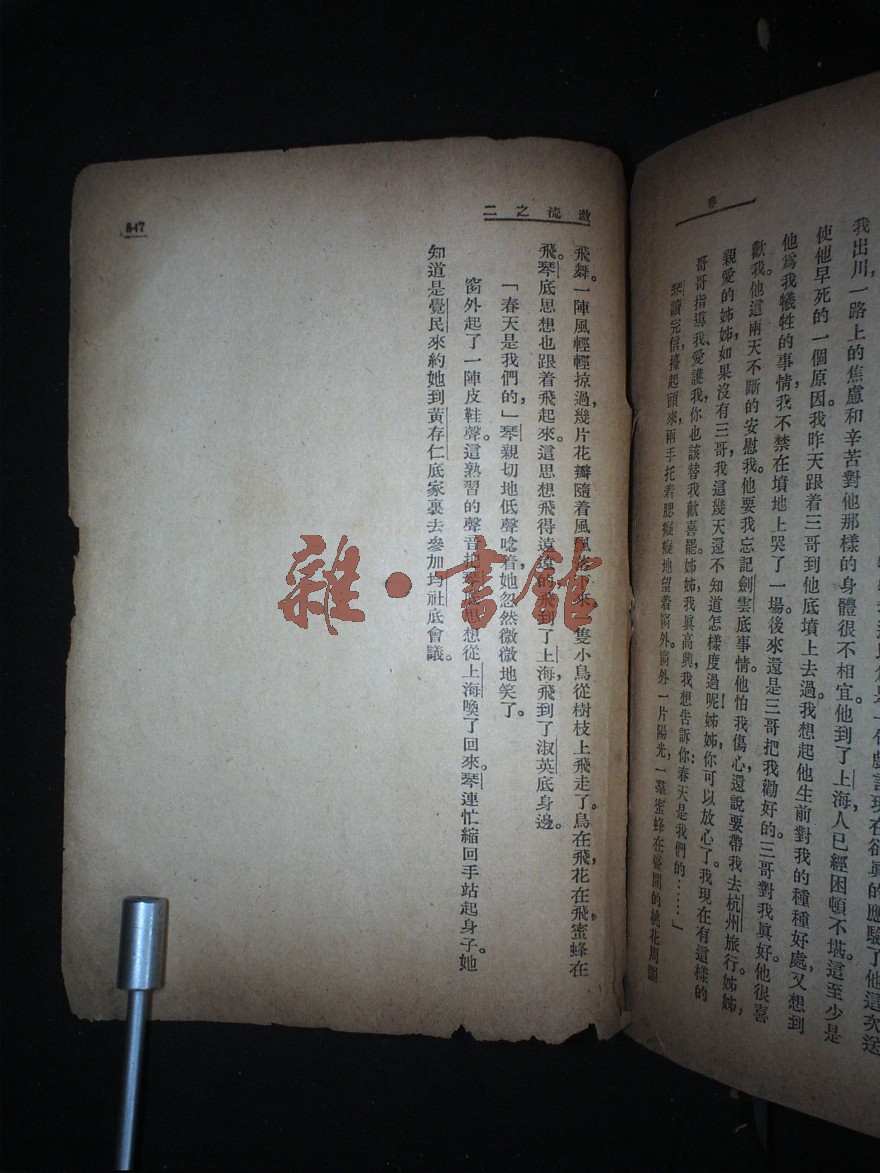 春
我出川一路上的焦慮和辛苦對他那樣的身體很不相宜。他到了上海，人已經困頓不堪。這至少是
使他早死的一個原因。我昨天跟着三哥到他底墳上去過。我想起他生前對我的種種好處，又想到
他爲我犧牲的事情，我不禁在墳地上哭了一場。後來還是三哥把我勸好的。三哥對我眞好。他很喜
歡我。他這兩天不斷的安慰我。他要我忘記劍雲底事情。他怕我傷心，還說要帶我去杭州旅行。姊姊，
親愛的姊姊，如果沒有三哥，我這幾天還不知道怎樣度過呢！姊姊，你可以放心了。我現在有這樣的
哥哥指導我、愛護我，你也該替我歡喜罷。姊姊，我眞高興，我想告訴你：春天是我們的……」
琴讀完信，擡起頭來，兩手托着腮，癡癡地望着窗外。窗外一片陽光，一羣蜜蜂在盛開的桃花周圍
激流之二
飛舞。一陣風輕輕掠過，幾片花瓣隨着風飄落下來。一隻小鳥從樹枝上飛走了。鳥在飛，花在飛，蜜蜂在
飛。琴底思想也跟着飛起來。這思想飛得遠遠的，飛到了上海，飛到了淑英底身邊。
「春天是我們的，」琴親切地低聲唸着，她忽然微微地笑了。
窗外起了一陣皮鞋聲。這熟習的聲音把琴底思想從上海喚了回來。琴連忙縮回手站起身子。她
知道是覺民來約她到黃存仁底家裏去參加均社底會議。
547
雜·書館